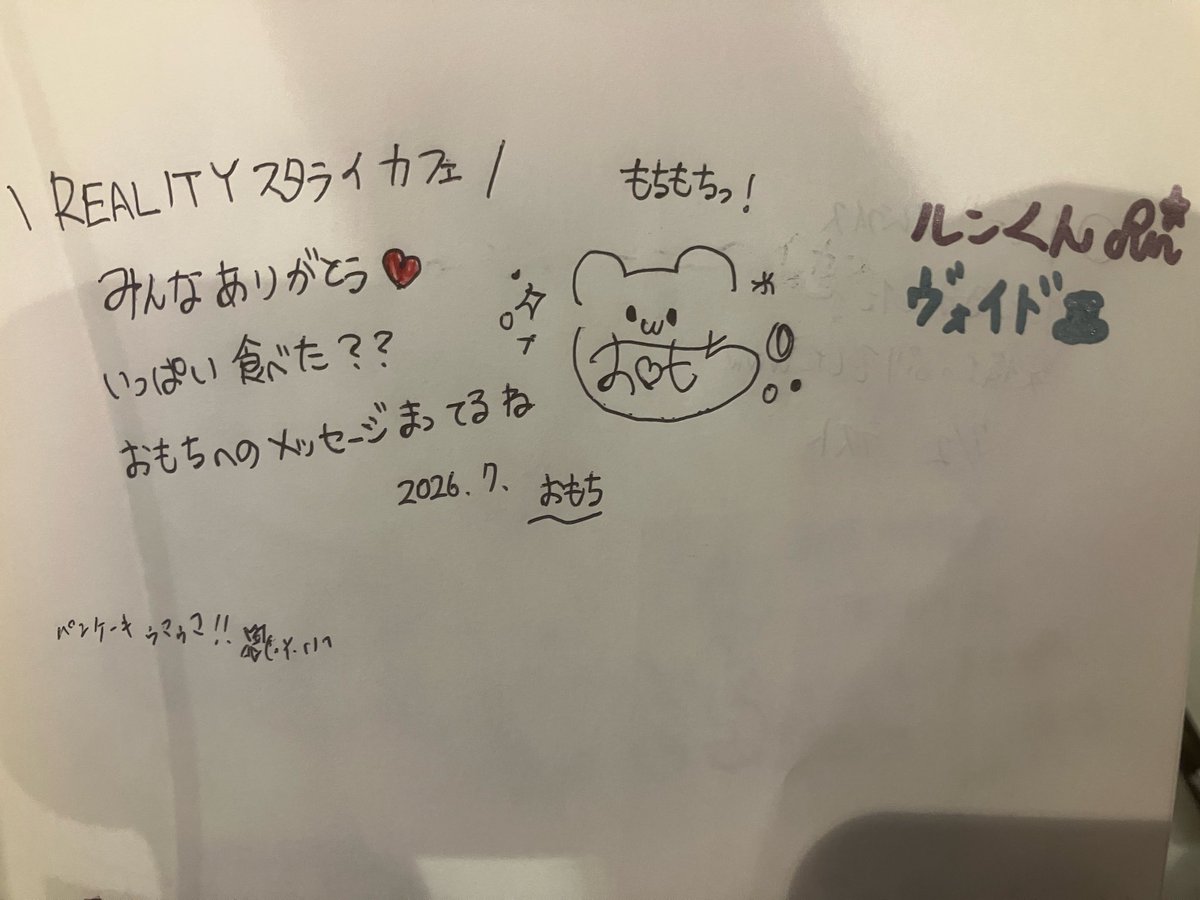 \ REALITYスタライカフェ /
みんなありがとう
いっぱい食べた??
おもちへのメッセージまってるね
2026.7. おもち
もちもちっ!
お♡も
ルンくん
ヴォイド
パンケーキうまうま!!